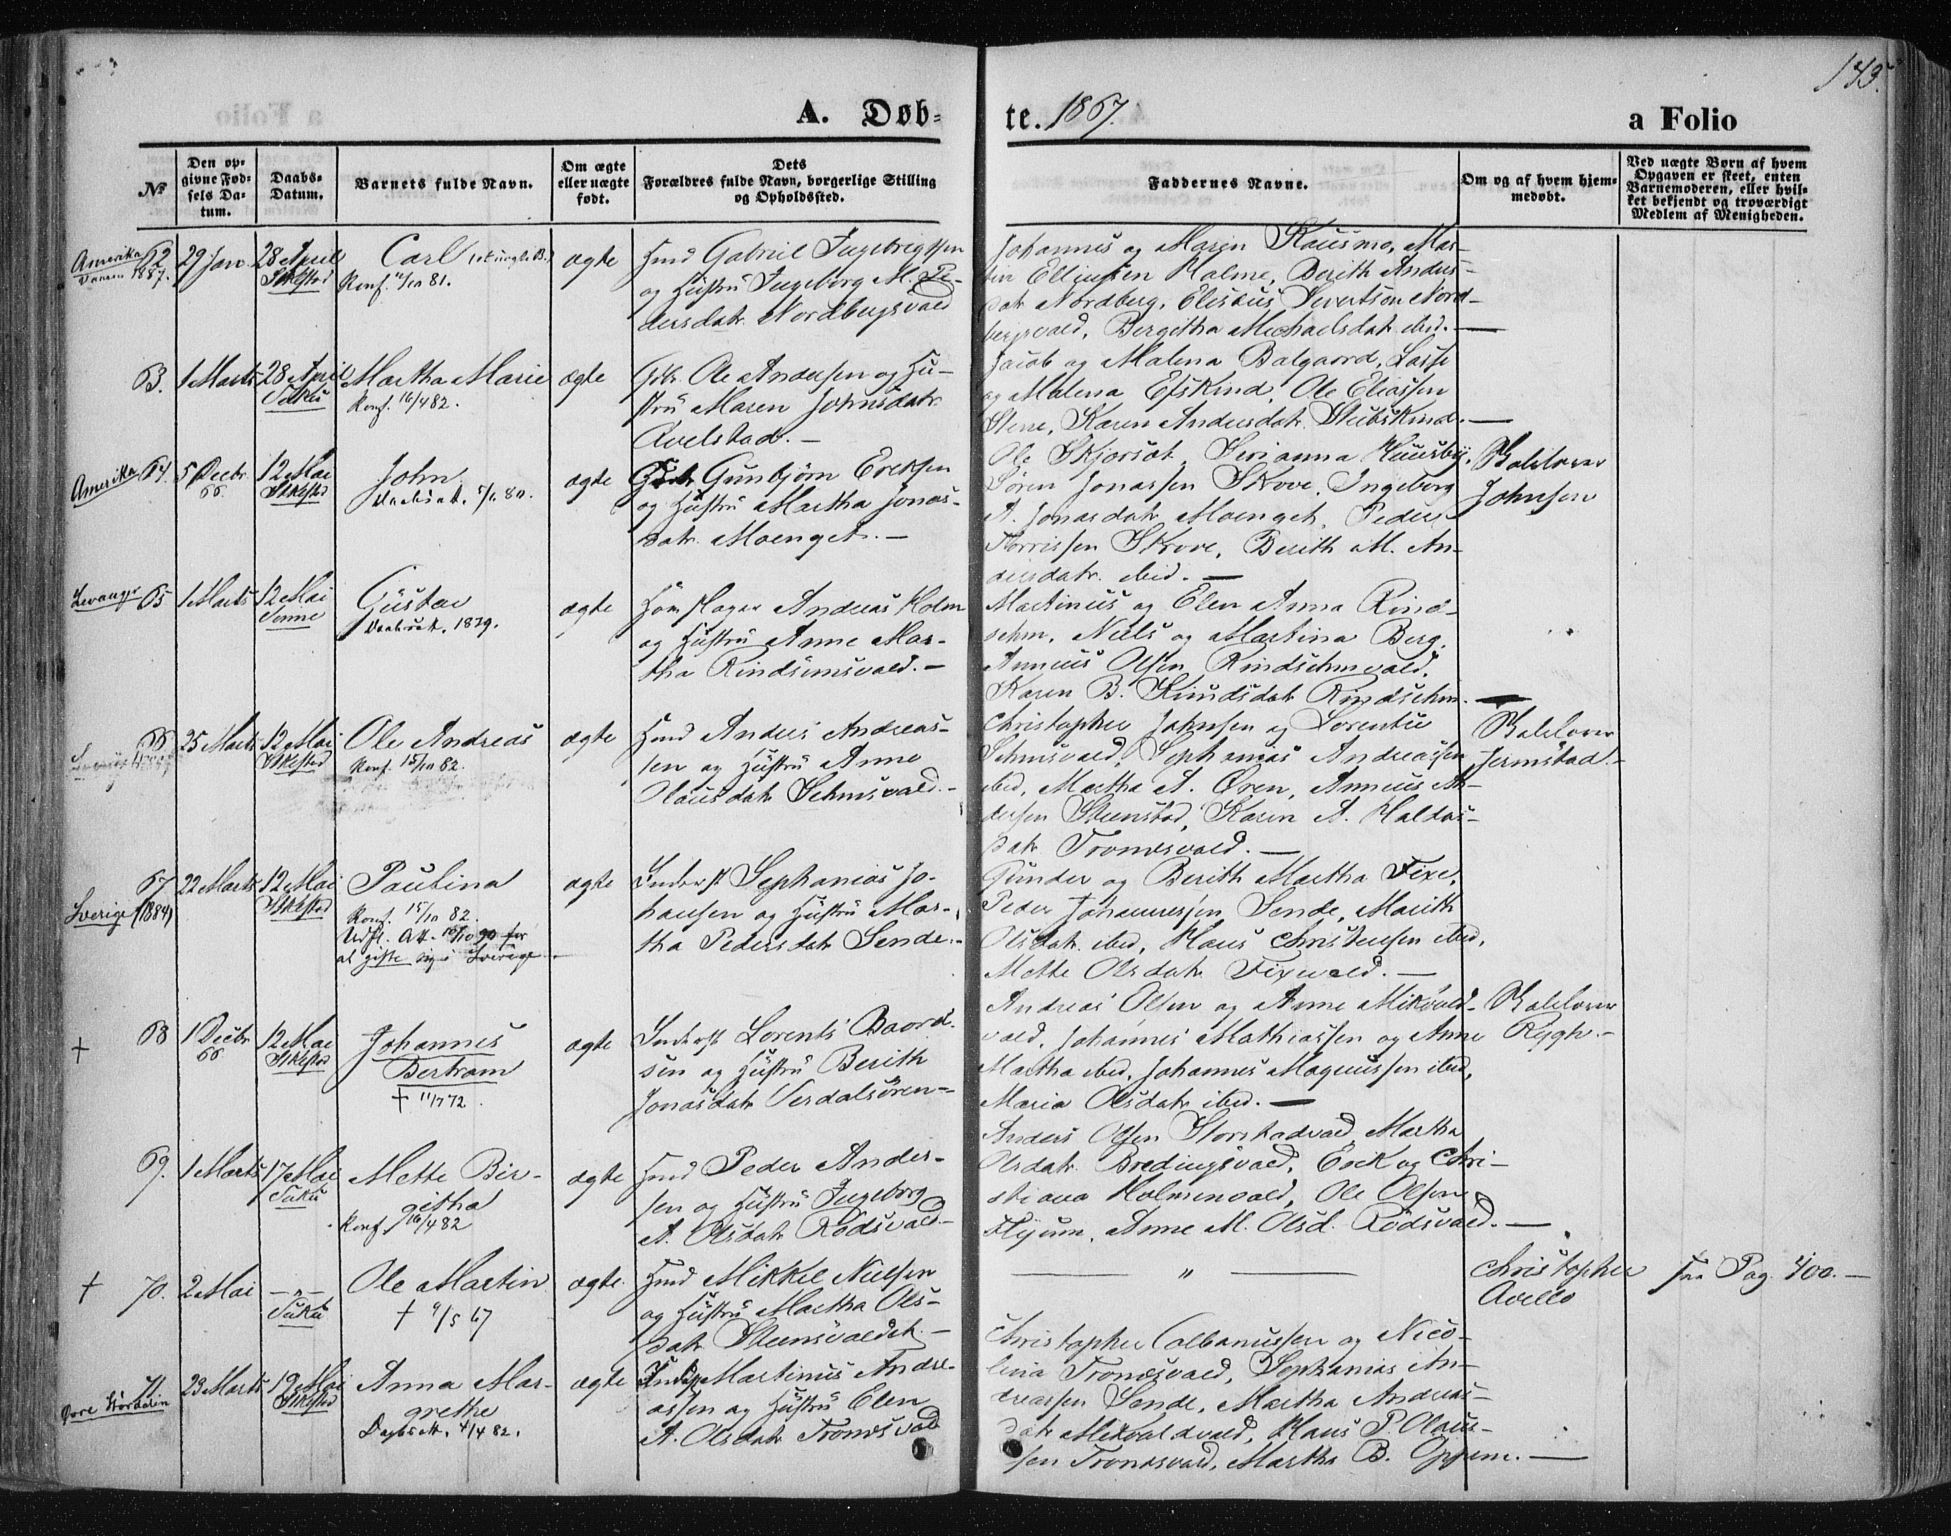 143.
A. Døb-
te. 1867.
a Folio
№
Den op-
givne Fød-
sels Da-
tum.
Daabs-
Datum.
Barnets fulde Navn.
Om ægte
eller uægte
født.
Dets
Forældres fulde Navn, borgerlige Stilling
og Opholdssted.
Faddernes Navne.
Om og af hvem hjem-
medøbt.
Ved uægte Børn af hvem
Opgaven er skeet, enten
Barnemoderen, eller hvil-
ket bekjendt og troværdigt
Medlem af Menigheden.
Amerika 62
1887.
29 Jan.
28 April
Stiklestad
Carl
Konf. 81.
ægte
Husmd Gabriel Ingebrigtsen
og Hustru Ingeborg M. Pe-
dersdatr. Nordbergsvald
Johannes og Maren Kausmo, Mar-
tin Ellingsen Holme, Berith Anders-
datr Nordberg, Eliseus Sivertsen Nord-
bergsvald, Bergitha Michaelsdatr. ibid. —
63.
1 Marts
28 April
Vuku
Martha Marie
Konf. 16/4 82.
ægte
Gdbr. Ole Andersen og Hu-
stru Maren Johnsdatr.
Auelstad. —
Jacob og Malena Balgaard, Lasse
og Malena Efskind, Ole Eliassen
Stene, Karen Andersdatr. Stubskind. —
Amerika 64.
5 Decbr.
66.
12 Mai
Stiklestad
John
Daabsatt. 80.
ægte
Gdbr. Gunbjørn Ericksen
og Hustru Martha Jonas-
datr. Moenget. —
Ole Skjørsæt, Sirianna Huusby,
Søren Jonassen Skove, Ingeborg
A. Jonasdatr Moenget, Peder
Torrissen Skove, Berith M. An-
dersdatr. ibid. —
Johnsen
Levanger 65
1 Marts
12 Mai
Vinne
Gustav
Daabsatt. 1879.
ægte
Andreas Holm
og Hustru Anne Mar-
tha Rindsemsvald. —
Martinus og Elen Anna Rind-
sehm, Niels og Martina Berg,
Annæus Olsen Rindsehmvald,
Karen B. Knudsdatr Rindsehm. —
66
25 Marts
12 Mai
Stiklestad
Ole Andreas
Konf. 15/10 82.
ægte
Husmd Anders Andreas-
sen og Hustru Anne
Olausdatr Sehmsvald. —
Christopher Johnsen og Lorentse
Sehmsvald, Sephanias Andreassen
ibid, Martha A. Øren, Annæus An-
dersen Steenstad, Karen A. Haldos-
datr Tronesvald. —
Jermstad. —
67
Sverige (1884)
22 Marts
12 Mai
Stiklestad
Paulina
Konf. 15/10 82.
Udfl. Att. 15/10 90 for
at gifte sig i Sverige.
ægte
Inderst Sephanias Jo-
hansen og Hustru Mar-
tha Pedersdatr Sende. —
Gunder og Berith Martha Fixe,
Peder Johannesen Sende, Marith
Olsdatr. ibid, Haus Christensen ibid,
Mette Olsdatr Fixevald. —
†
68
1 Decbr
66
12 Mai
Stiklestad
Johannes
Bertram
† 11/7 72.
ægte
Inderst Lorents Baard-
sen og Hustru Berith
Jonasdatr Verdalsøren —
Andreas Olsen og Anne Mikvold-
vald, Johannes Mathiassen og Anne
Martha ibid, Johannes Magnussen ibid,
Maria Olsdatr ibid. —
Rygh. —
69.
1 Marts
17 Mai
Vuku
Mette Bir-
githa
Konf 16/4 82
ægte
Husmd Peder Ander-
sen og Hustru Ingeborg
A. Olsdatr Rodsvald —
Anders Olsen Storstadvald, Martha
Olsdatr. Bredingsvald, Erik og Chri-
stiana Holmenvald, Ole Olsen
Flyum, Anne M. Olsd. Rodsvald. —
†
70.
2 Mai
— „ —
Vuku
Ole Martin
† 9/5 67
ægte.
Husmd Mikkel Nielsen
og Hustru Martha Ols-
datr. Steensvaldet —
— „ —
Christopher
Auello
fra Pag. 400. —
71.
23 Marts
19 Mai
Stiklestad
Anna Mar-
grethe
Daabsatt. 4/4 82.
ægte
Martinus Andre-
assen og Hustru Elen
A. Olsdatr Tronesvald
Christopher Albanussen og Nico-
lina Tronesvald, Sephanias An-
dreassen Sende, Martha Andreas-
datr Mikvoldvald, Haus P. Olaus-
sen Tronesvald, Martha B. Oppem. —